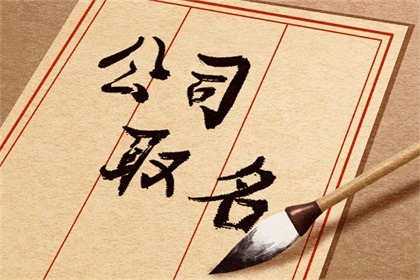 公司
取名